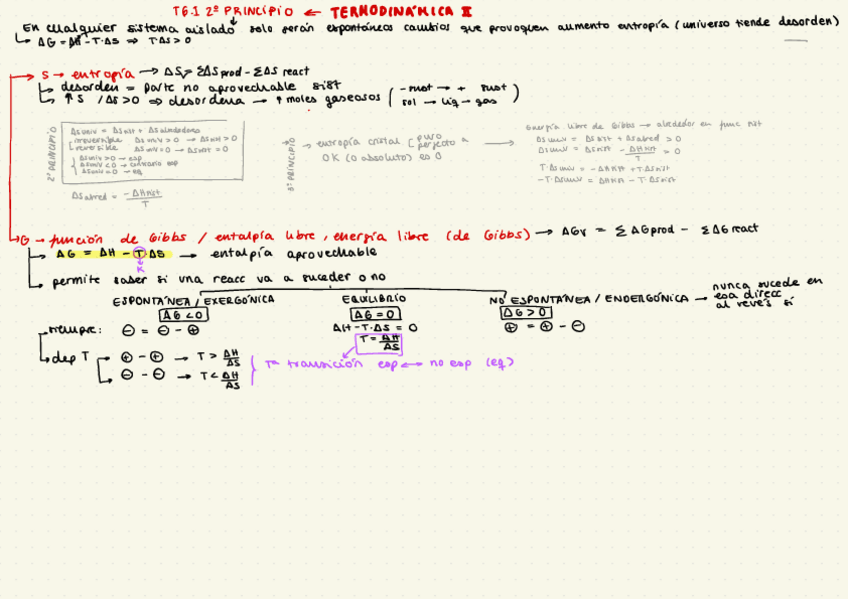 T6.I 2º PRINCIPIO ← TERMODINÁMICA II
En cualquier sistema aislado solo serán espontáneos cambios que provoquen aumento entropía (universo tiende desorden)
↳ ΔG = ΔH - T·ΔS ⇒ T·ΔS > 0
S → entropía → ΔSr = ΣΔS prod - ΣΔS react
↳ desorden = parte no aprovechable sist
↳ ↑ S / ΔS > 0 ⇒ desordena → ↑ moles gaseosos ( - sust → + sust
sol → líq → gas )
2º PRINCIPIO
ΔS univ = ΔS sist + ΔS alrededores
irreversible ΔS univ > 0 → ΔS sist > 0
reversible ΔS univ = 0 → ΔS sist = 0
ΔS univ > 0 → esp
ΔS univ < 0 → contrario esp
ΔS univ = 0 → eq
ΔS alred = -ΔH sist / T
3º PRINCIPIO
→ entropía cristal [ puro
perfecto a
0 K (0 absoluto) es 0
Energía libre de Gibbs → alrededor en func sist
ΔS univ = ΔS sist + ΔS alred > 0
ΔS univ = ΔS sist - ΔH sist / T > 0
T·ΔS univ = -ΔH sist + T·ΔS sist
-T·ΔS univ = ΔH sist - T·ΔS sist
G → función de Gibbs / entalpía libre, energía libre (de Gibbs) → ΔGr = ΣΔG prod - ΣΔG react
↳ ΔG = ΔH - T·ΔS → entalpía aprovechable
K
↳ permite saber si una reacc va a suceder o no
ESPONTÁNEA / EXERGÓNICA EQUILIBRIO NO ESPONTÁNEA / ENDERGÓNICA → nunca sucede en
esa direcc
al revés sí
ΔG < 0 ΔG = 0 ΔG > 0
siempre: ⊖ = ⊖ - ⊕ ΔH - T·ΔS = 0 ⊕ = ⊕ - ⊖
T = ΔH / ΔS
dep T ⊕ - ⊕ → T > ΔH / ΔS
⊖ - ⊖ → T < ΔH / ΔS
Tª transición esp ↔ no esp (eq)